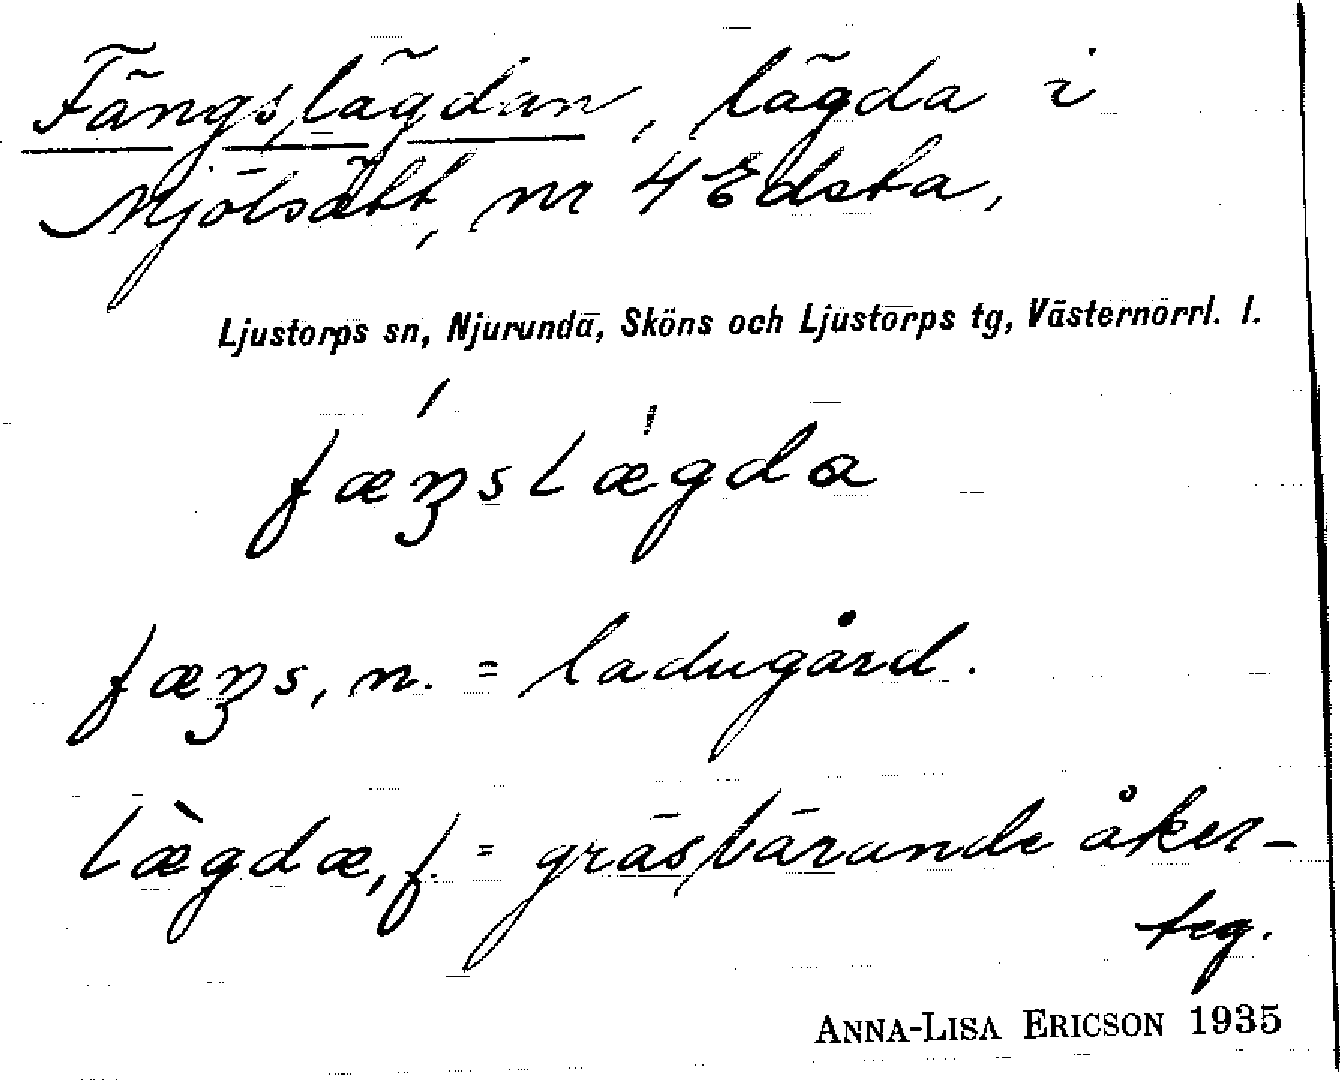 Fängslägdan, lägda i
Mjölsätt, nr 4 Edsta,
Ljustorps sn, Njurunda, Sköns och Ljustorps tg, Västernorrl. l.
fæŋslægda
fæŋs, n. = ladugård.
lægdæ, f. = gräsbärande åker-
teg.
ANNA-LISA ERICSON 1935